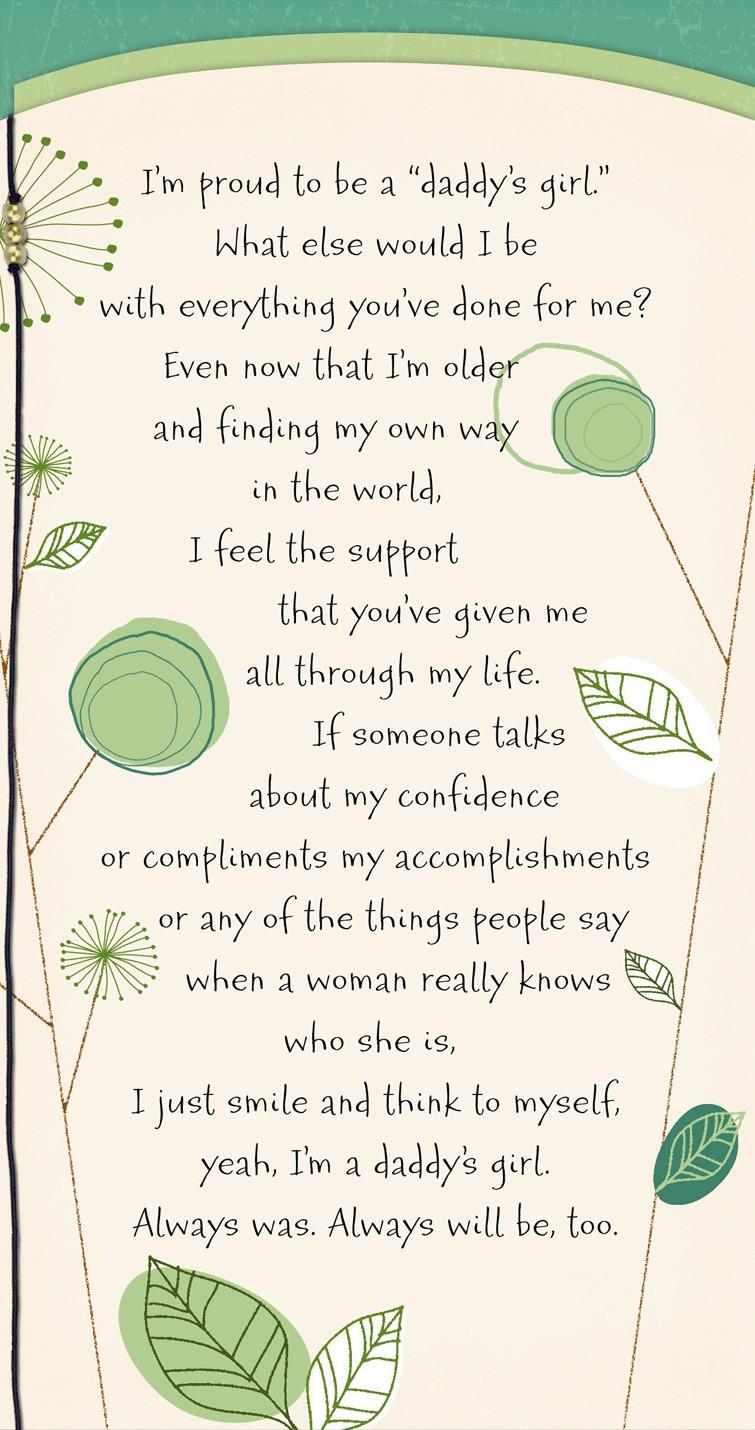 I'm proud to be a “daddy's girl.”
What else would I be
with everything you've done for me?
Even now that I'm older
and finding my own way
in the world,
I feel the support
that you've given me
all through my life.
If someone talks
about my confidence
or compliments my accomplishments
or any of the things people say
when a woman really knows
who she is,
I just smile and think to myself,
yeah, I'm a daddy's girl.
Always was. Always will be, too.